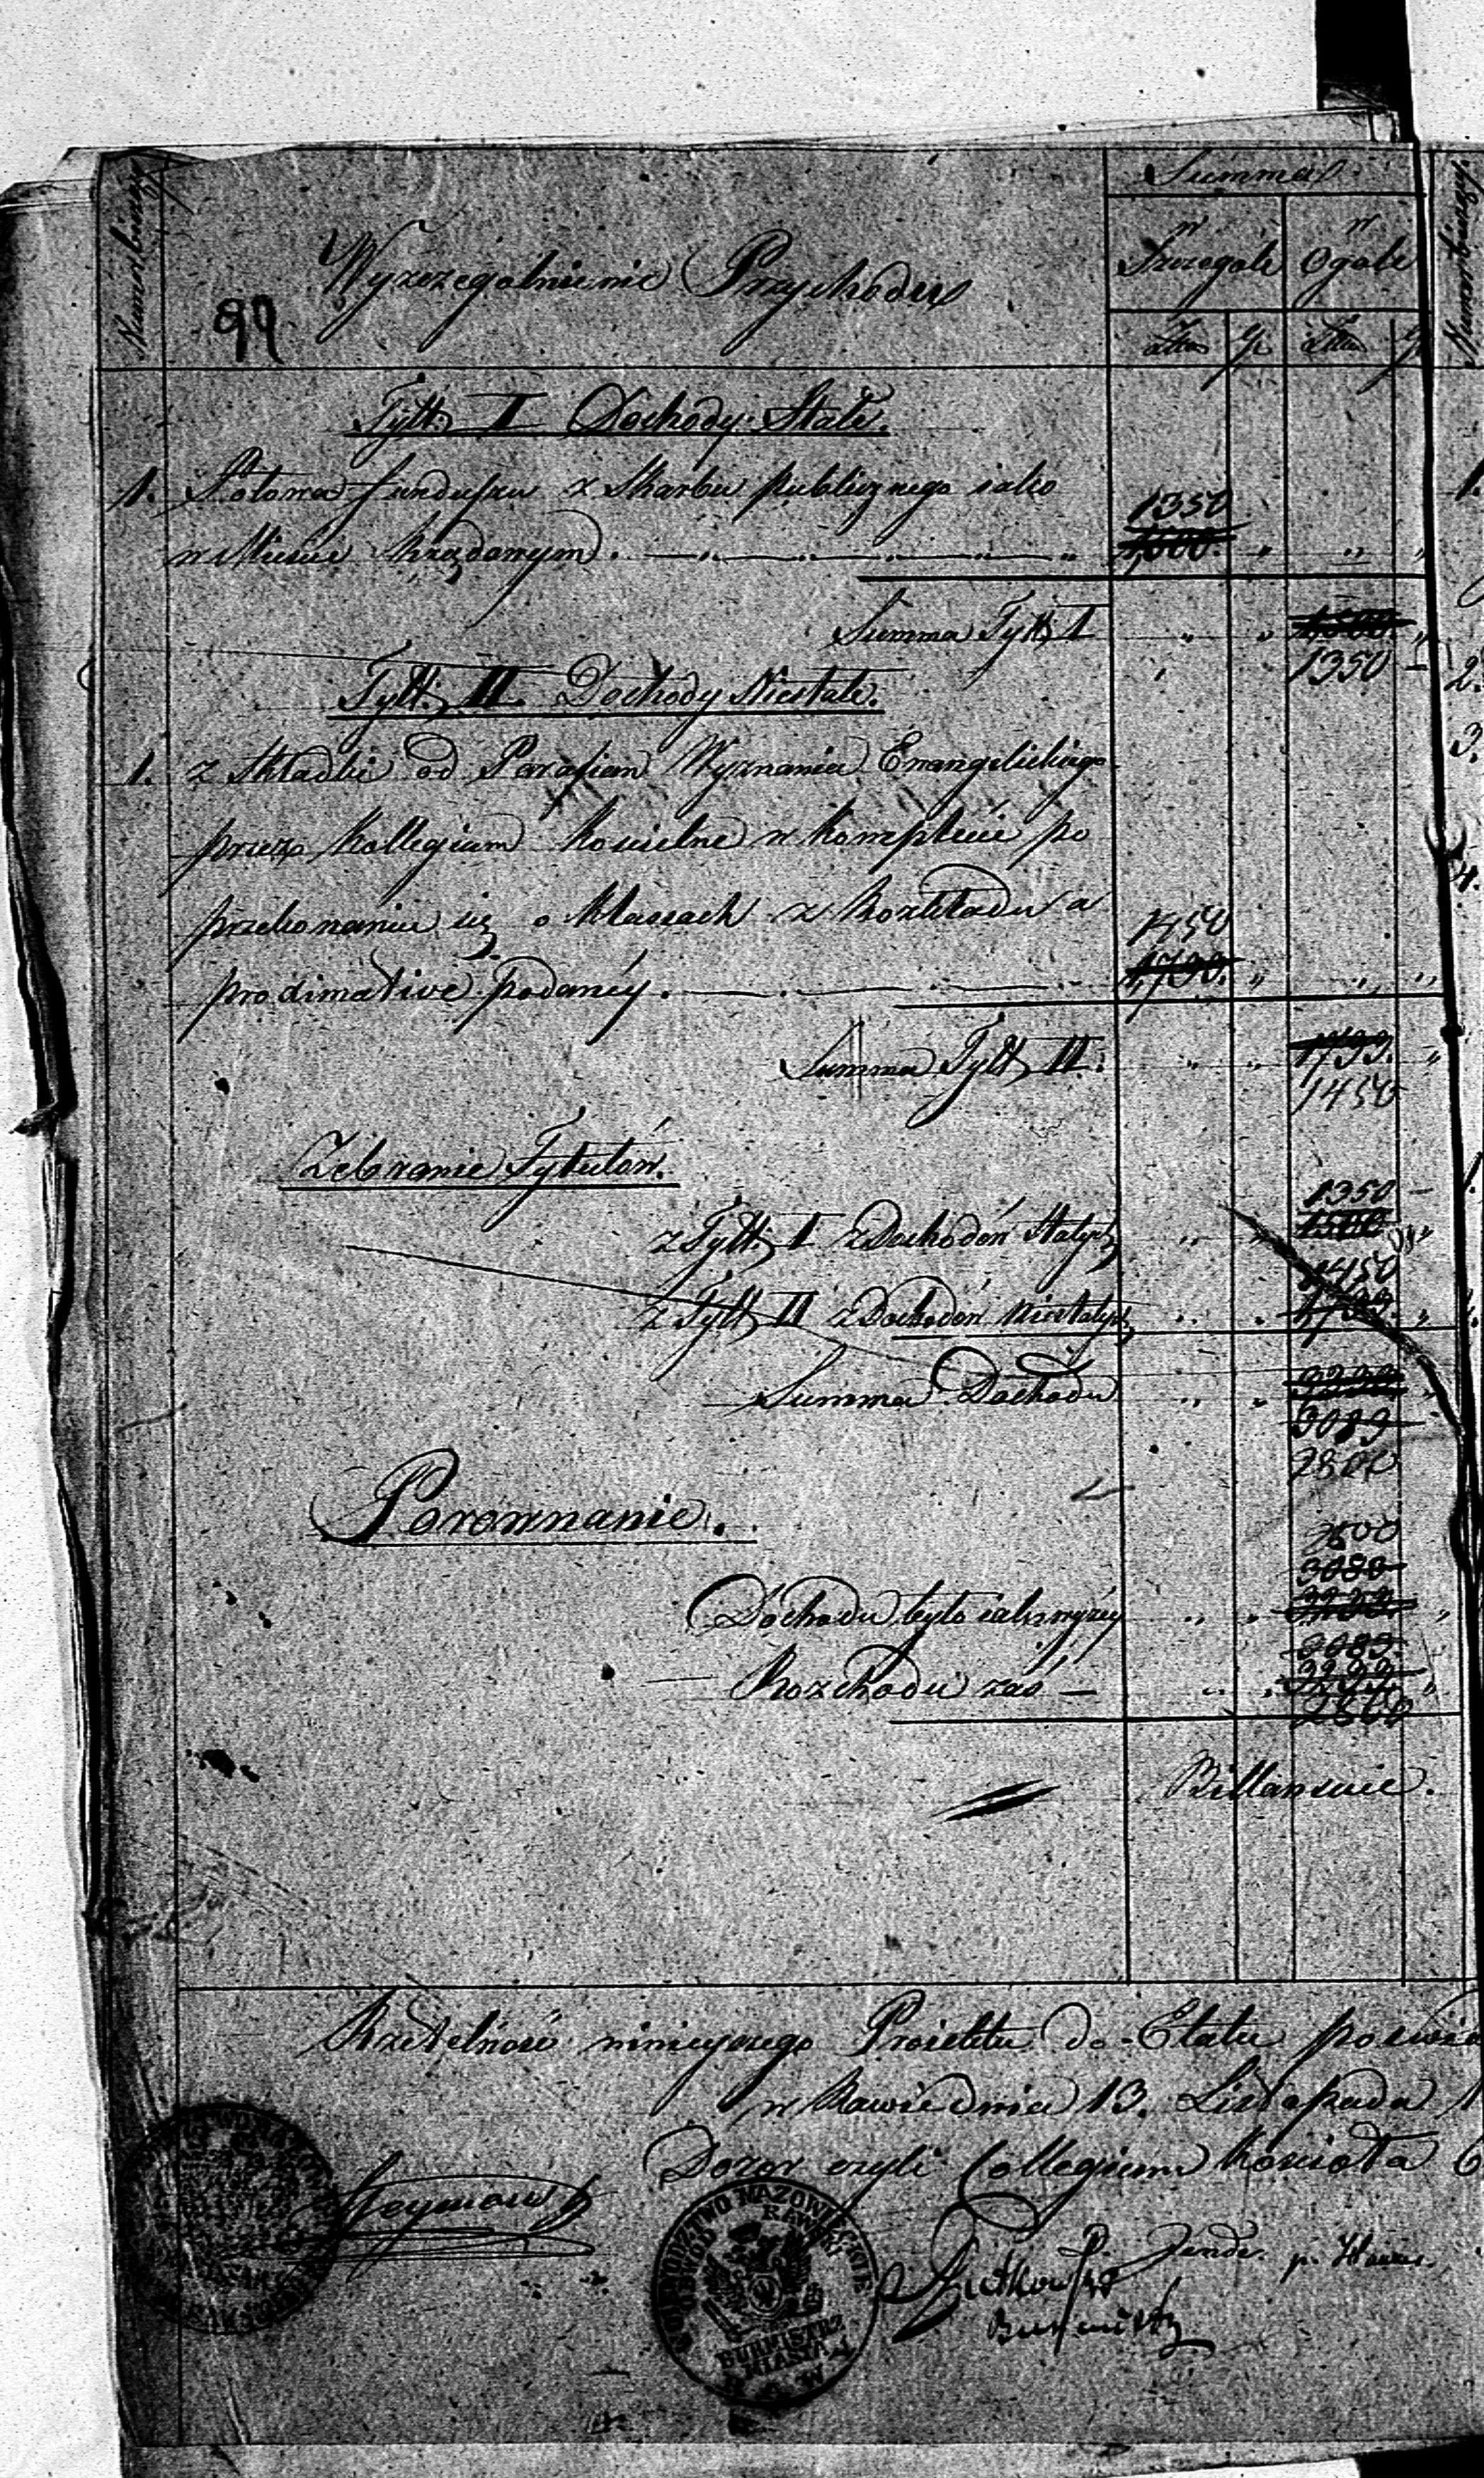 Numer bieżący
Wyszczegolnienie Przychodu
99
Summa
w Szczegole
w Ogole
Złtt
gr
Złtt
gr
Tytt. I Dochody Stałe.
1. Połowa funduszu z Skarbu publicznego iako
1350
w Mieście Rządowym.
1,500.
Summa Tytt. I
1500.
1350
Tytt. II. Dochody Niestałe.
1. z Składki od Parafian Wyznania Ewangelickiego
przez Kollegium Kościelne w komplecie po
przekonaniu się o Klassach z Rozkładu a
1450
proximative podanéy.
1,739.
Summa Tytt. II.
1739.
1450
Zebranie Tytułów.
1350
z Tytt. I z Dochodów Stałych
1500
1450
z Tytt. II z Dochodów niestałych
1,739.
Summa Dochodu
3239
3089
2800
Porownanie.
2800
3089
Dochodu było iak wyżey
3239.
3089.
Rozchodu zaś
3239.
2800
Billansuie.
Rzetelność ninieyszego Proiektu do Etatu
w Rawie dnia 13. Listopada
Dozor czyli Collegium Kościoła
P. Jende.
Burmistrz
WOJEWODZTWO MAZOWIECKIE
OBWOD RAWSKI
BURMISTRZ
MIASTA
RAWA